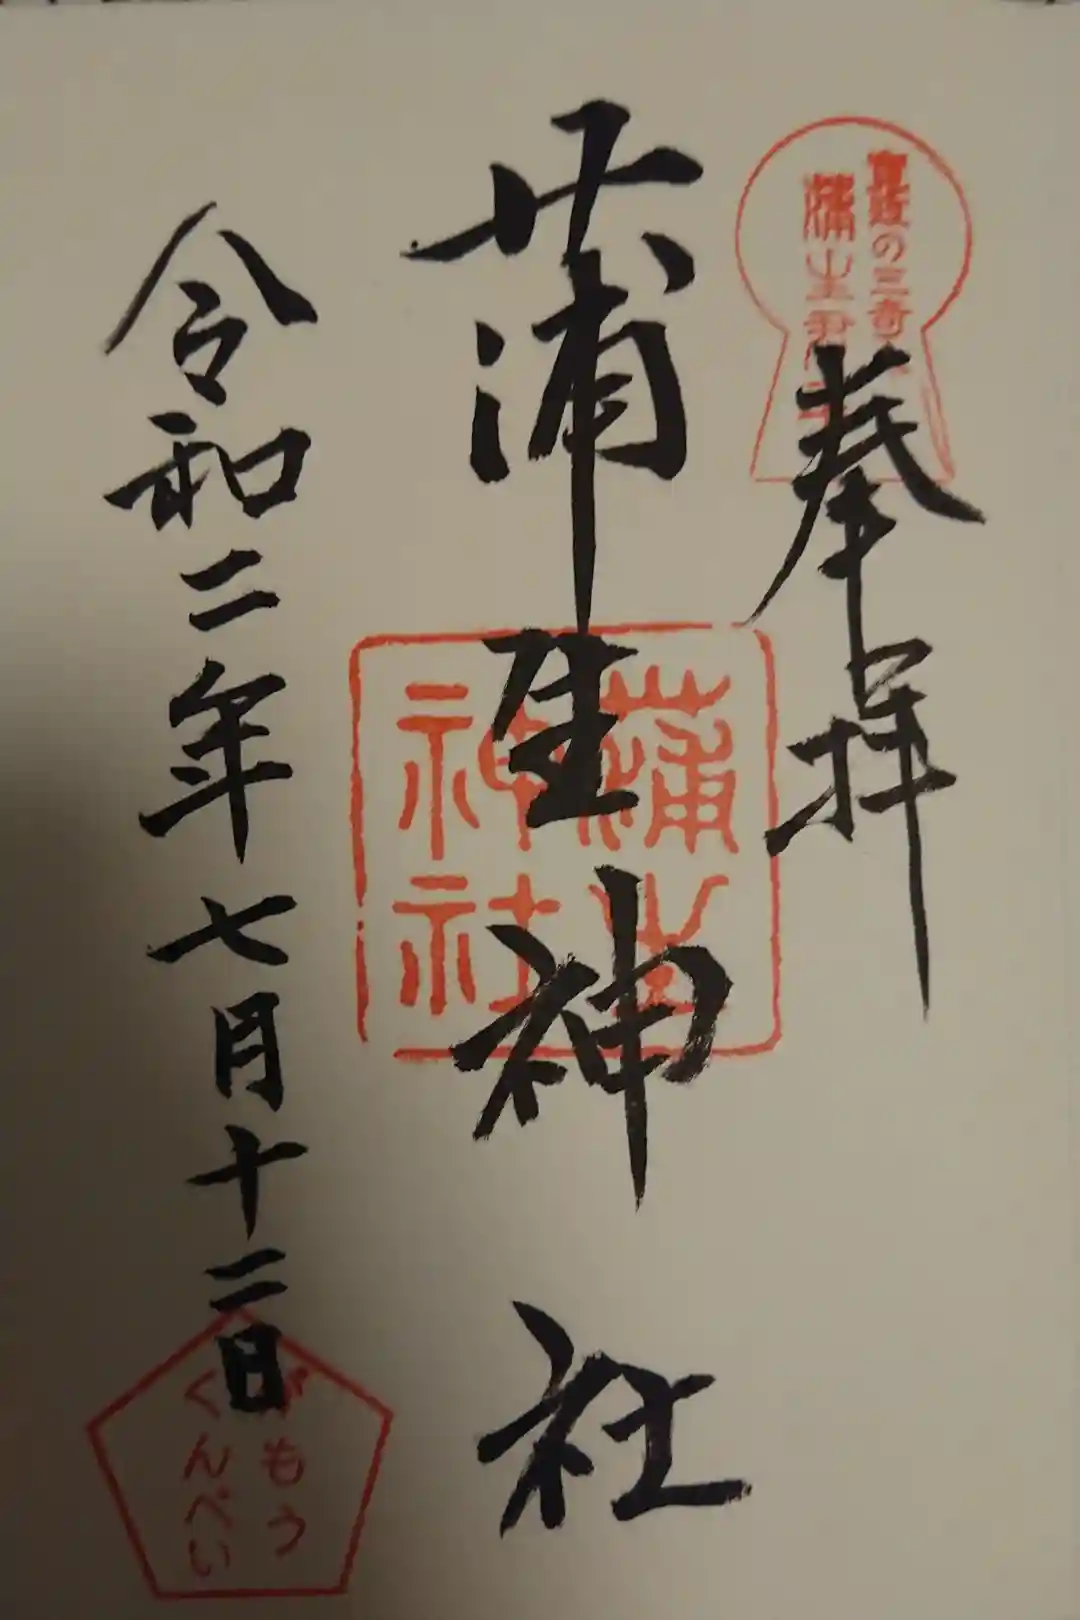 寛政の三奇人
蒲生君平
奉拝
蒲生神社
蒲生
神社
令和二年七月十二日
がもう
くんぺい